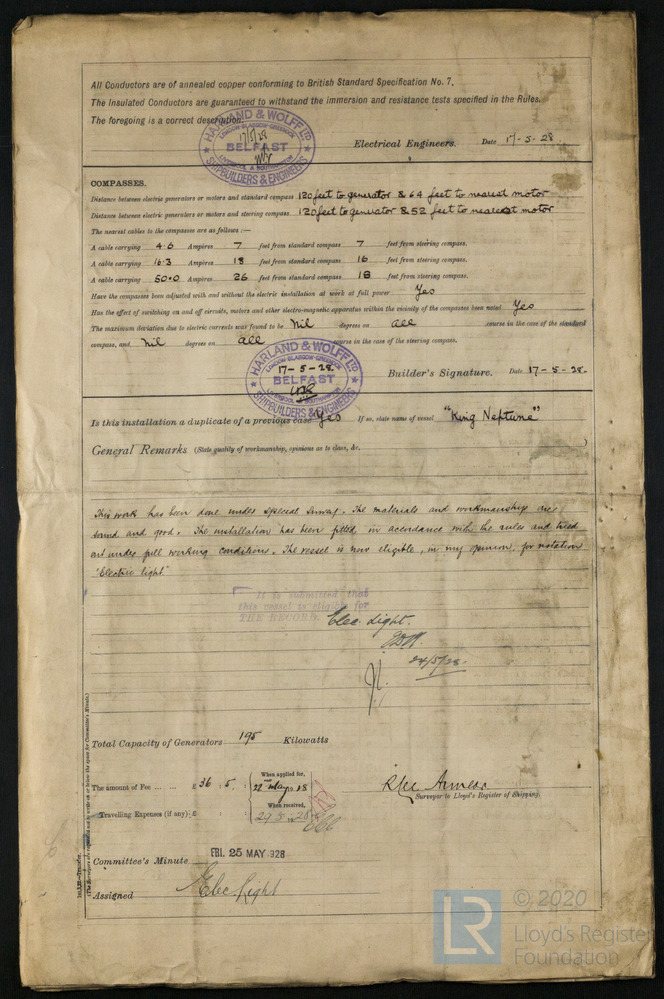 All Conductors are of annealed copper conforming to British Standard Specification No. 7.
The Insulated Conductors are guaranteed to withstand the immersion and resistance tests specified in the Rules.
The foregoing is a correct description.
HARLAND & WOLFF LTD
LONDON-GLASGOW-GREENOCK
17/5/28
BELFAST
LIVERPOOL & SOUTHAMPTON
SHIPBUILDERS & ENGINEERS
Electrical Engineers. Date 17-5-28.
COMPASSES.
Distance between electric generators or motors and standard compass 120 feet to generator & 64 feet to nearest motor
Distance between electric generators or motors and steering compass 120 feet to generator & 52 feet to nearest motor
The nearest cables to the compasses are as follows:—
A cable carrying 4.6 Ampères 7 feet from standard compass 7 feet from steering compass.
A cable carrying 16.3 Ampères 18 feet from standard compass 16 feet from steering compass.
A cable carrying 50.0 Ampères 26 feet from standard compass 18 feet from steering compass.
Have the compasses been adjusted with and without the electric installation at work at full power Yes
Has the effect of switching on and off circuits, motors and other electro-magnetic apparatus within the vicinity of the compasses been noted Yes
The maximum deviation due to electric currents was found to be Nil degrees on all course in the case of the standard
compass, and Nil degrees on all course in the case of the steering compass.
HARLAND & WOLFF LTD
LONDON-GLASGOW-GREENOCK
17-5-28.
BELFAST
LIVERPOOL & SOUTHAMPTON
SHIPBUILDERS & ENGINEERS
Builder's Signature. Date 17-5-28.
Is this installation a duplicate of a previous case Yes If so, state name of vessel "King Neptune"
General Remarks (State quality of workmanship, opinions as to class, &c.
This work has been done under special survey. The materials and workmanship are
sound and good. The installation has been fitted in accordance with the rules and tried
out under full working conditions. The vessel is now eligible, in my opinion, for notation
"Electric light"
It is submitted that
this vessel is eligible for
THE RECORD. Elec. Light.
24/5/28.
Total Capacity of Generators 195 Kilowatts
The amount of Fee ... ... £36 : 5 : When applied for, 22nd May 1928
Travelling Expenses (if any) £ : : When received, 29.5.28
Surveyor to Lloyd's Register of Shipping.
Committee's Minute FRI. 25 MAY 1928
Assigned Elec. Light
© 2020
LR
Lloyd's Register
Foundation